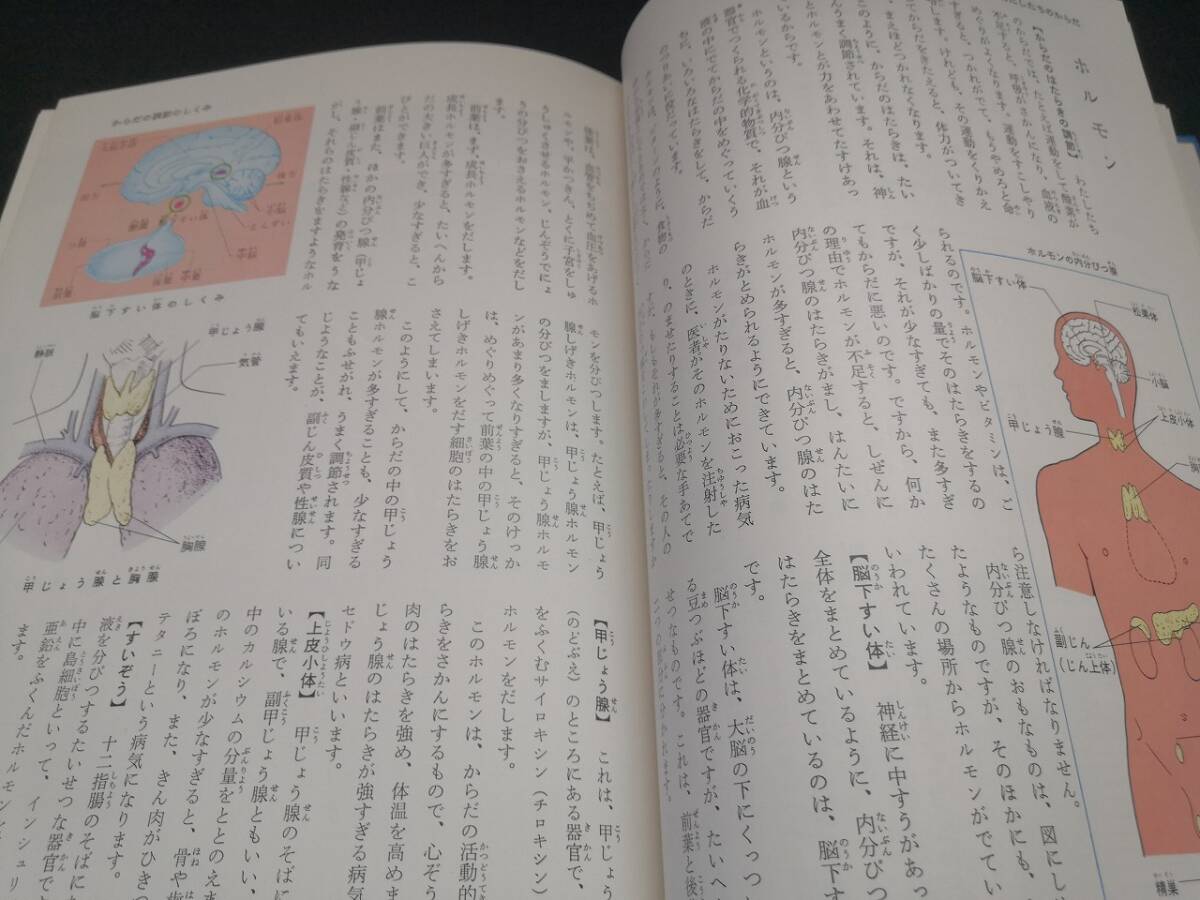 わたしたちのからだ
ホルモン
【からだのはたらきの調節】 わたしたち
のからだでは、たとえば運動をして酸素が
不足すると、呼吸がさかんになり、血液の
めぐりがよくなります。運動をすこしやり
すぎると、つかれがでて、もうやめろと命
けれども、その運動をくりかえ
してからだをきたえると、体力がついてき
まえほどつかれなくなります。
このように、からだのはたらきは、たい
へんうまく調節されています。それは、神
とホルモンとが力をあわせてたすけあっ
ているからです。
ホルモンというのは、内分ぴつ腺という
器官でつくられる化学的物質で、それが血
液の中にでてからだの中をめぐっていくう
ちに、いろいろなはたらきをして、からだ
ホルモンの内分ぴつ腺
脳下すい体
松果体
小脳
上皮小体
甲じょう腺
胸
副じん
(じん上体)
精巣
られるのです。ホルモンやビタミンは、ご
く少しばかりの量でそのはたらきをするの
ですが、それが少なすぎても、また多すぎ
てもからだに悪いのです。ですから、何か
の理由でホルモンが不足すると、しぜんに
内分ぴつ腺のはたらきがまし、はんたいに
ホルモンが多すぎると、内分ぴつ腺のはた
らきがとめられるようにできています。
ホルモンがたりないためにおこった病気
のときに、医者がそのホルモンを注射した
り、のませたりすることは必要な手あてで
すが、もしそれが多すぎると、その人の
ら注意しなければなりません。
内分ぴつ腺のおもなものは、図にし
たようなものですが、そのほかにも、
たくさんの場所からホルモンがでてい
いわれています。
【脳下すい体】 神経に中すうがあっ
全体をまとめているように、内分ぴつ
はたらきをまとめているのは、脳下す
です。
脳下すい体は、大脳の下にくっつ
る豆つぶほどの器官ですが、たいへ
せつなものです。これは、前葉と後
からだの調節のしくみ
脳下すい体のしくみ
後葉は、血管をちぢめて血圧をあげるホ
ルモンや、平かつきん、とくに子宮をしゅ
うしゅくさせるホルモン、じんぞうでにょ
うの分ぴつをおさえるホルモンなどをだし
ます。
前葉は、まず、成長ホルモンをだします。
成長ホルモンが多すぎると、たいへんから
だの大きい巨人ができ、少なすぎると、こ
びとができます。
前葉はまた、ほかの内分ぴつ腺(甲じょ
う腺・副じん皮質・性腺など)の発育をうな
がし、それらのはたらきをますようなホル
甲じょう腺
静脈
気管
胸腺
甲じょう腺と胸腺
モンを分ぴつします。たとえば、甲じょう
腺しげきホルモンは、甲じょう腺ホルモン
の分ぴつをましますが、甲じょう腺ホルモ
ンがあまり多くなりすぎると、そのけっか
は、めぐりめぐって前葉の中の甲じょう腺
しげきホルモンをだす細胞のはたらきをお
さえてしまいます。
このようにして、からだの中の甲じょう
腺ホルモンが多すぎることも、少なすぎる
こともふせがれ、うまく調節されます。同
じようなことが、副じん皮質や性腺につい
てもいえます。
【甲じょう腺】 これは、甲じょう
(のどぶえ)のところにある器官で、
をふくむサイロキシン(チロキシン)
ホルモンをだします。
このホルモンは、からだの活動的
らきをさかんにするもので、心ぞう
肉のはたらきを強め、体温を高めま
じょう腺のはたらきが強すぎる病気
セドウ病といいます。
【上皮小体】 甲じょう腺のそばに
いる腺で、副甲じょう腺ともいい、
中のカルシウムの分量をととのえま
のホルモンが少なすぎると、骨や歯
ぼろになり、また、きん肉がひきつ
テタニーという病気になります。
【すいぞう】 十二指腸のそばに
液を分ぴつするたいせつな器官で
中に島細胞といって、インシュリ
亜鉛をふくんだホルモン
ます。